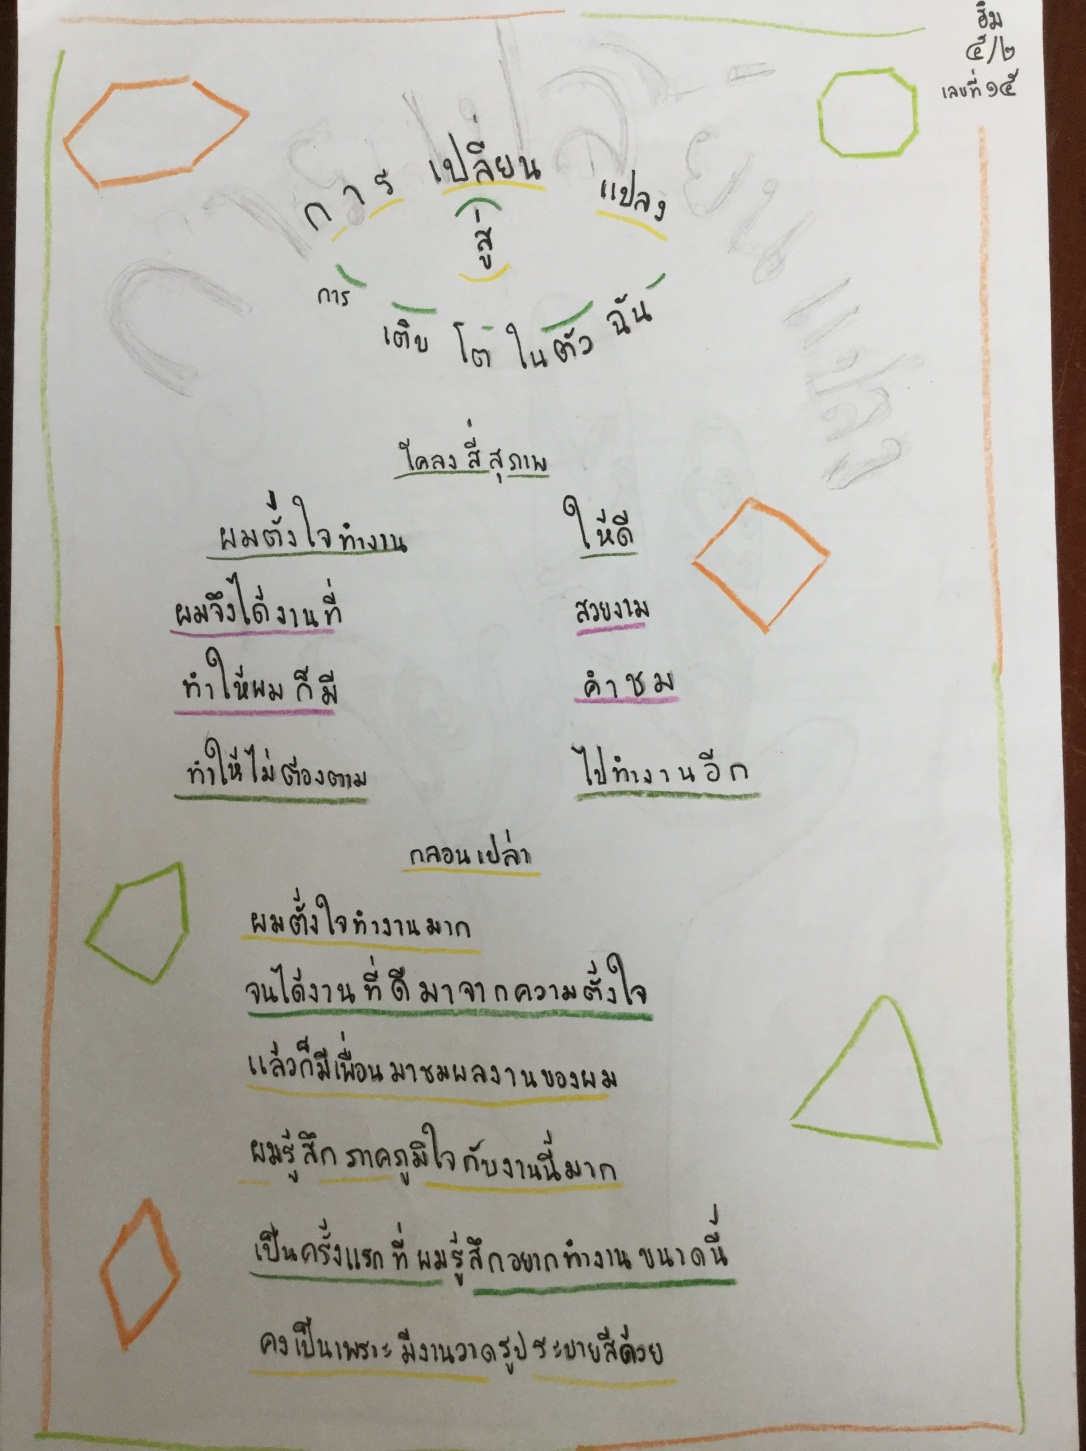 อิ่ม
๕/๒
เลขที่ ๑๕
การ เปลี่ยน แปลง
สู่
การ เติบ โต ใน ตัว ฉัน
โคลง สี่ สุภาพ
ผมตั้งใจทำงาน ให้ดี
ผมจึงได้งานที่ สวยงาม
ทำให้ผมก็มี คำชม
ทำให้ไม่ต้องตาม ไปทำงานอีก
กลอนเปล่า
ผมตั้งใจทำงานมาก
จนได้งานที่ดีมาจากความตั้งใจ
แล้วก็มีเพื่อนมาชมผลงานของผม
ผมรู้สึกภาคภูมิใจกับงานนี้มาก
เป็นครั้งแรกที่ผมรู้สึกอยากทำงานขนาดนี้
คงเป็นเพราะมีงานวาดรูประบายสีด้วย
การเปลี่ยนแปลง